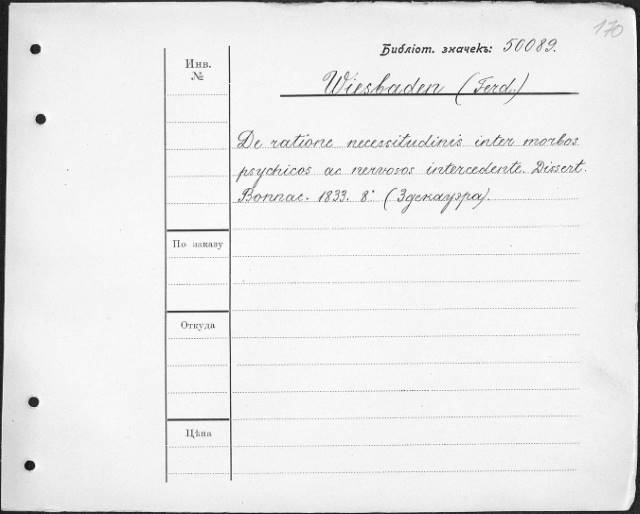 170
Библіот. значекъ: 50089.
Инв.
№
Wiesbaden (Ferd.)
De ratione necessitudinis inter morbos
psychicos ac nervosos intercedente. Dissert.
Bonnae. 1833. 8° (Здекауэра).
По заказу
Откуда
Цѣна